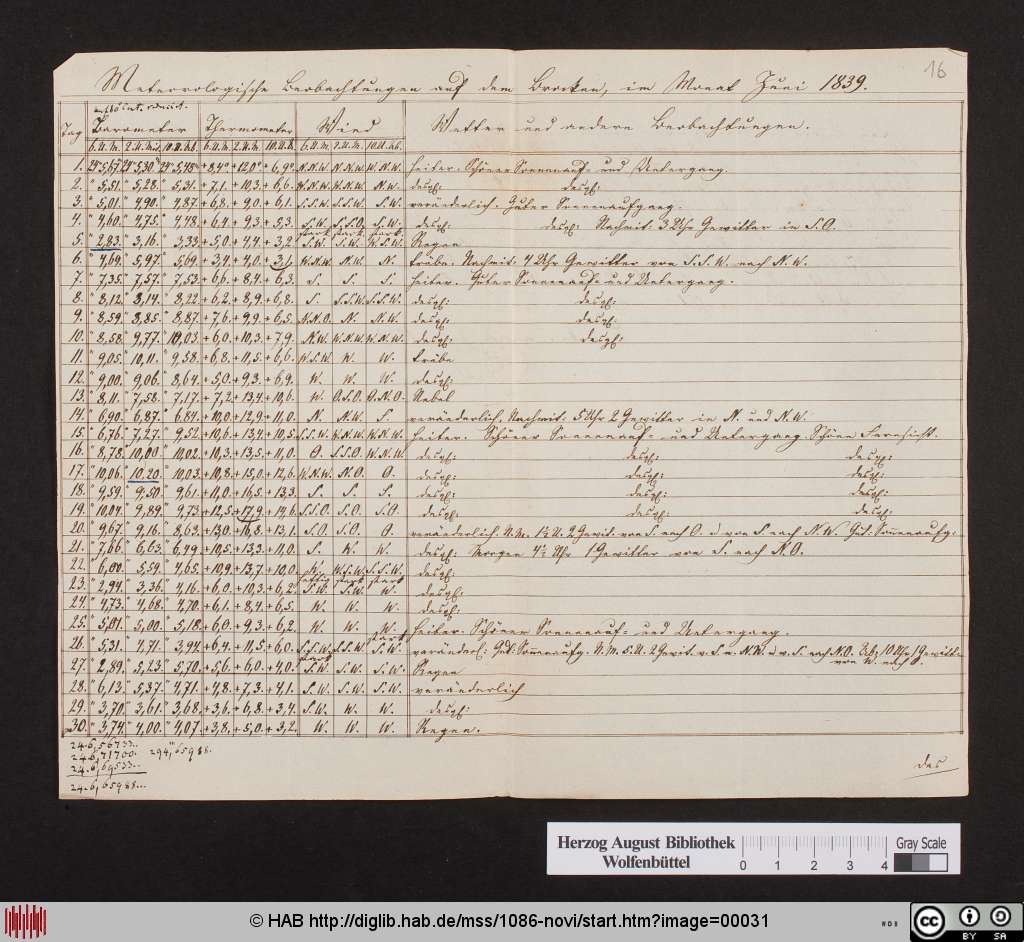 16
Meteorologische Beobachtungen auf dem Brocken, im Monat Juni 1839.
Tag Barometer Thermometer Wind Wetter und andere Beobachtungen.
6.U.M. 2.U.M. 10.U.Ab. 6.U.M. 2.U.M. 10.U.Ab. 6.U.M. 2.U.M. 10.U.Ab.
1. 24" 5,67. 24" 5,30" 24" 5,45" + 8,4° + 12,0° + 6,9° N.N.W. N.N.W. N.N.W. heiter. Schöner Sonnenauf- und Untergang.
2. " 5,51. " 5,28. " 5,31. + 7,1. + 10,3. + 6,6. W.N.W. W.N.W. N.W. desgl: desgl:
3. " 5,01. " 4,90. " 4,87. + 6,8. + 9,0. + 6,1. S.S.W. S.S.W. S.W. veränderlich. Guter Sonnenaufgang.
4. " 4,60. " 4,75. " 4,48. + 6,4. + 9,3. + 5,3. S.W. S.S.O. S.W. desgl: desgl: Nachmit: 3 Uhr Gewitter in S.O.
stark stark stark
5. " 2,83. " 3,16. " 3,33. + 5,0. + 4,4. + 3,2 S.W. S.W. W.S.W. Regen
6. " 4,69. " 5,97. " 5,69 + 3,4 + 4,0. + 3,1. W.N.W. N.W. N. trübe. Nachmit: 4 Uhr Gewitter von S.S.W. nach N.W.
7. " 7,35. " 7,57. " 7,53 + 6,6. + 8,4. + 6,3. S. S. S. heiter. Guter Sonnenauf- und Untergang.
8. " 8,12. " 8,14. " 8,22. + 6,2. + 8,9. + 6,8. S. S.S.W. S.S.W. desgl: desgl:
9. " 8,59. " 8,85. " 8,87. + 7,6. + 9,9. + 6,5. N.N.O. N. N.W. desgl: desgl:
10. " 8,58. " 9,77. " 10,03. + 6,0. + 10,3. + 7,9. N.W. W.N.W. W.N.W. desgl: desgl:
11. " 9,05. " 10,11. " 9,58. + 6,8. + 11,5. + 6,6. W.S.W. W. W. trübe
12. " 9,00. " 9,06. " 8,64. + 5,0. + 9,3. + 6,9. W. W. W. desgl:
13. " 8,11. " 7,58. " 7,17. + 7,2. + 13,4. + 10,6. W. O.S.O. O.N.O. Nebel
14. " 6,90. " 6,87. " 6,84. + 10,0. + 12,9. + 11,0. N. N.W. S. veränderlich. Nachmit: 5 Uhr 2 Gewitter in N. und N.W.
15. " 6,76. " 7,27. " 9,52. + 10,6. + 13,4. + 10,5. S.S.W. W.N.W. W.N.W. heiter. Schöner Sonnenauf- und Untergang. Schöne Fernsicht.
16. " 8,78. " 10,00 " 10,02. + 10,3. + 13,5. + 11,0. O. S.S.O. W.N.W. desgl: desgl: desgl:
17. " 10,06. " 10,20. " 10,03. + 10,8. + 15,0. + 12,6. W.N.W. N.O. O. desgl: desgl: desgl:
18. " 9,59. " 9,50. " 9,61. + 11,0. + 16,5. + 13,3. S. S. S. desgl: desgl: desgl:
19. " 10,04. " 9,89. " 9,73. + 12,5. + 17,9. + 14,6. S.S.O. S.O. S.O. desgl: desgl: desgl:
20. " 9,67. " 9,16. " 8,63. + 13,0. + 16,8. + 13,1. S.O. S.O. O. veränderlich. N.M. 1½ U. 2 Gewit. von S. nach O. u von S. nach N.W. Gut. Sonnenaufg:
21. " 7,66. " 6,63. " 6,49. + 10,5. + 13,3. + 11,0. S. W. W. desgl: Morgen 4½ Uhr 1 Gewitter von S. nach N.O.
22. " 6,00. " 5,59. " 4,65. + 10,9. + 13,7. + 10,0. W. W.S.W. S.S.W. desgl:
heftig stark stark
23. " 2,94. " 3,36. " 4,16. + 6,0. + 10,3. + 6,2. S.W. S.W. W. desgl:
24. " 4,73. " 4,68. " 4,70. + 6,1. + 8,4. + 6,5. W. W. W. desgl:
25. " 5,01. " 5,00. " 5,18. + 6,0. + 9,3. + 6,2. W. W. W. heiter. Schöner Sonnenauf- und Untergang.
stark
26. " 5,31. " 4,71. " 3,94. + 6,4. + 11,5. + 6,0. S.S.W. S.S.W. S.W. veränderl: Gut. Sonnenaufg. N.M. 5 U. 2 Gewit. v. S. n. N.W. u v. S. nach N.O. Ab: 10 Uhr 1 Gewitt:
stark von W. nach O.
27. " 2,89. " 5,23. " 5,70. + 5,6. + 6,0. + 4,0. S.W. S.W. S.W. Regen
28. " 6,13. " 5,37. " 4,71. + 4,8. + 7,3. + 4,1. S.W. S.W. S.W. veränderlich
29. " 3,70. " 3,61. " 3,68. + 3,6. + 6,8. + 3,4. S.W. W. W. desgl:
30. " 3,74. " 4,00. " 4,07. + 3,8. + 5,0. + 3,2. W. W. W. Regen.
24.6,56733..
24.6,71700. 294",65988.
24.6,69533..
24.6,65988...
des
Herzog August Bibliothek
Wolfenbüttel
0 1 2 3 4
Gray Scale
© HAB http://diglib.hab.de/mss/1086-novi/start.htm?image=00031
WDB
cc BY SA